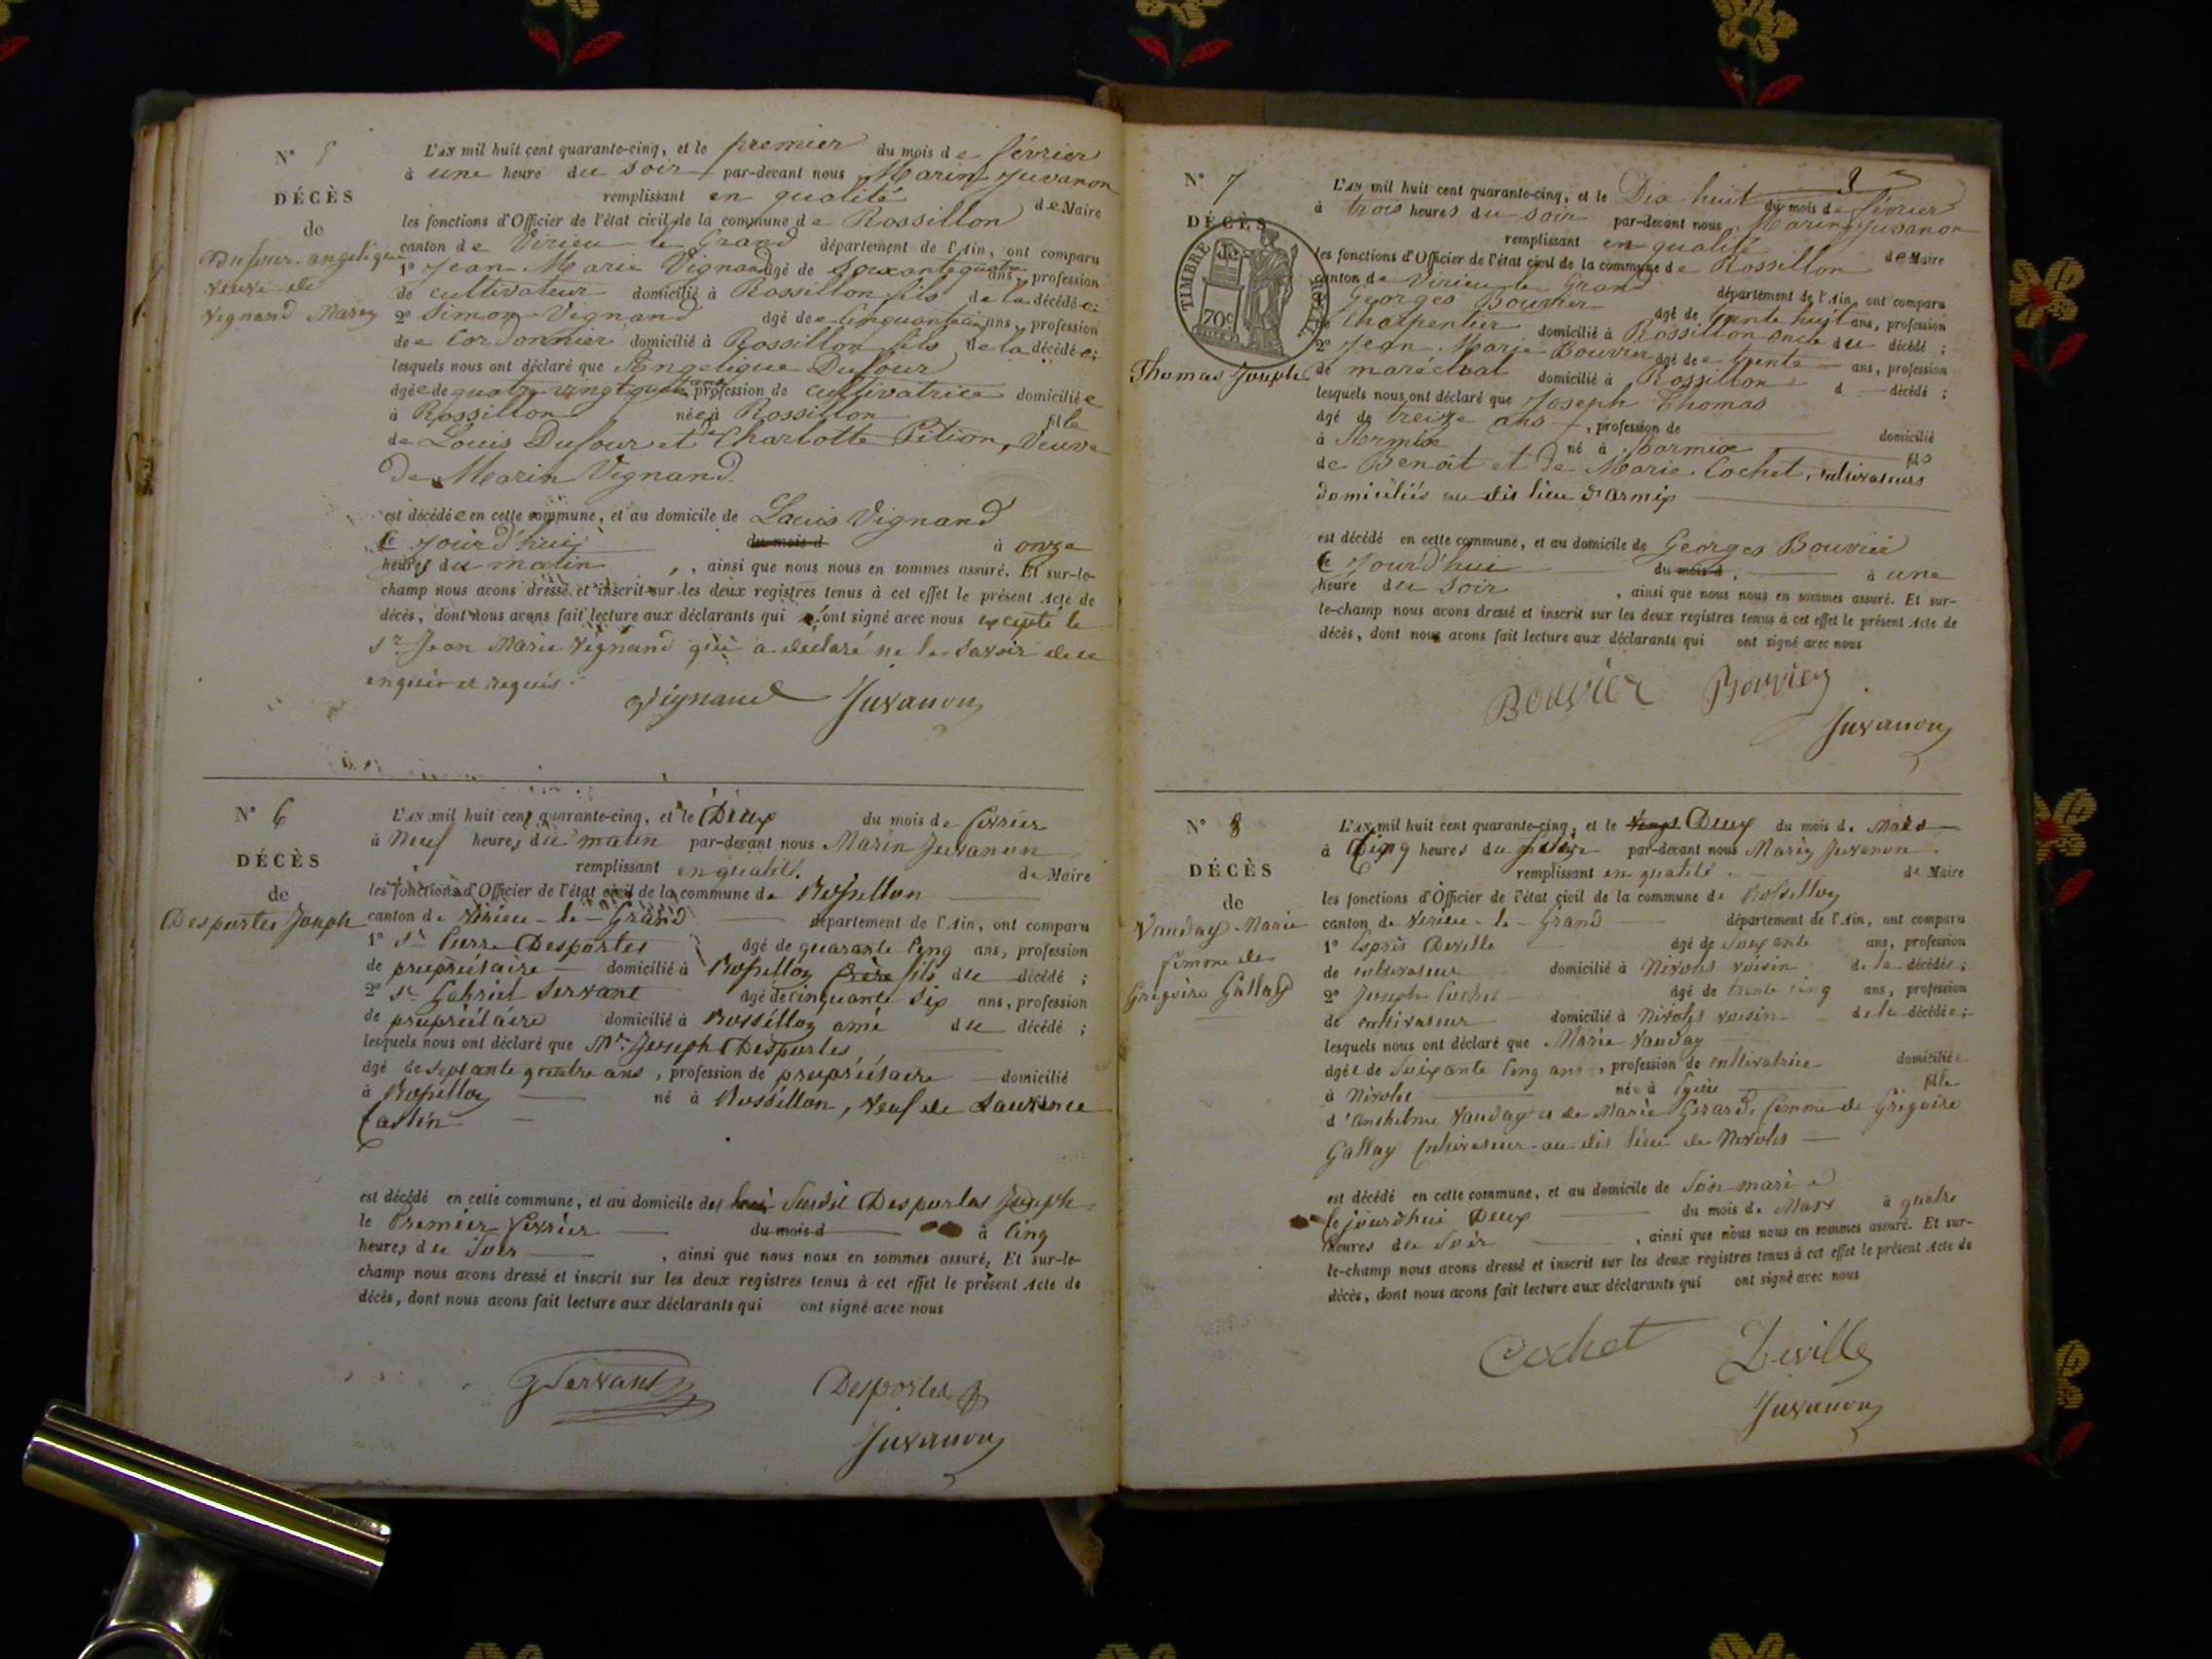 N° 5
DÉCÈS
de
Dufour angelique
veuve de
Vignand Marin
L'AN mil huit cent quarante-cinq, et le premier du mois de février
à une heure du soir par-devant nous Marin Juvanon
remplissant en qualité de Maire
les fonctions d'Officier de l'état civil de la commune de Rossillon
canton de Virieu le Grand département de l'Ain, ont comparu
1° Jean Marie Vignand âgé de soixante quatre ans, profession
de cultivateur domicilié à Rossillon fils de la décédée;
2° Simon Vignand âgé de cinquante ans, profession
de cordonnier domicilié à Rossillon fils de la décédée;
lesquels nous ont déclaré que Angelique Dufour
âgée de quatre vingt quatre ans profession de cultivatrice domiciliée
à Rossillon née à Rossillon fille
de Louis Dufour et de Charlotte Pition, Veuve
de Marin Vignand.
est décédée en cette commune, et au domicile de Louis Vignand
Ce jourd'hui du mois d à onze
heures du matin, ainsi que nous nous en sommes assuré. Et sur-le-
champ nous avons dressé et inscrit sur les deux registres tenus à cet effet le présent Acte de
décès, dont nous avons fait lecture aux déclarants qui ont signé avec nous excepté le
Sr Jean Marie Vignand qui a déclaré ne le savoir de ce
enquis et requis
Vignand Juvanon
N° 6
DÉCÈS
de
Desportes Joseph
L'AN mil huit cent quarante-cinq, et le Deux du mois de février
à Neuf heures du matin par-devant nous Marin Juvanon
remplissant en qualité de Maire
les fonctions d'Officier de l'état civil de la commune de Rossillon
canton de Virieu-le-Grand département de l'Ain, ont comparu
1° Sr Pierre Desportes âgé de quarante cinq ans, profession
de propriétaire domicilié à Rossillon frère fils du décédé;
2° Sr Gabriel Servant âgé de cinquante six ans, profession
de propriétaire domicilié à Rossillon ami du décédé;
lesquels nous ont déclaré que Mr Joseph Desportes,
âgé de septante quatre ans, profession de propriétaire domicilié
à Rossillon né à Rossillon, veuf de Laurence
Castin
est décédé en cette commune, et au domicile de Desportes Joseph
le Premier février du mois d à cinq
heures du soir, ainsi que nous nous en sommes assuré, Et sur-le-
champ nous avons dressé et inscrit sur les deux registres tenus à cet effet le présent Acte de
décès, dont nous avons fait lecture aux déclarants qui ont signé avec nous
G Servant Desportes
Juvanon
N° 7
DÉCÈS
TIMBRE ROYAL
70c
Thomas Joseph
L'AN mil huit cent quarante-cinq, et le Dix huit du mois de février
à trois heures du soir par-devant nous Marin Juvanon
remplissant en qualité de Maire
les fonctions d'Officier de l'état civil de la commune de Rossillon
canton de Virieu le Grand département de l'Ain, ont comparu
Georges Bouvier âgé de trente huit ans, profession
de charpentier domicilié à Rossillon oncle du décédé;
2° Jean Marie Bouvier âgé de trente ans, profession
de maréchal domicilié à Rossillon d décédé;
lesquels nous ont déclaré que Joseph Thomas
âgé de treize ans, profession de domicilié
à Armix né à Armix fils
de Benoît et de Marie Cochet, cultivateurs
domiciliés au dit lieu d'armix
est décédé en cette commune, et au domicile de Georges Bouvier
Ce jourd'hui du mois d à une
heure du soir, ainsi que nous nous en sommes assuré. Et sur-
le-champ nous avons dressé et inscrit sur les deux registres tenus à cet effet le présent Acte de
décès, dont nous avons fait lecture aux déclarants qui ont signé avec nous
Bouvier Bouvier
Juvanon
N° 8
DÉCÈS
de
Vauday Marie
femme de
Grégoire Gallay
L'AN mil huit cent quarante-cinq, et le Deux du mois de Mars
à Cinq heures du par-devant nous Marin Juvanon
remplissant en qualité de Maire
les fonctions d'Officier de l'état civil de la commune de Rossillon
canton de Virieu-le-Grand département de l'Ain, ont comparu
1° Esprit Deville âgé de soixante ans, profession
de cultivateur domicilié à Nivolet voisin de la décédée;
2° Joseph Cochet âgé de trente cinq ans, profession
de cultivateur domicilié à Nivolet voisin de la décédée;
lesquels nous ont déclaré que Marie Vauday
âgée de soixante cinq ans, profession de cultivatrice domiciliée
à Nivolet née à fille
d'Anthelme Vauday et de Marie Gerard, femme de Grégoire
Gallay Cultivateur au dit lieu de Nivolet
est décédé en cette commune, et au domicile de son mari
Ce jourd'hui Deux du mois de Mars à quatre
heures du soir, ainsi que nous nous en sommes assuré. Et sur-
le-champ nous avons dressé et inscrit sur les deux registres tenus à cet effet le présent Acte de
décès, dont nous avons fait lecture aux déclarants qui ont signé avec nous
Cochet Deville
Juvanon